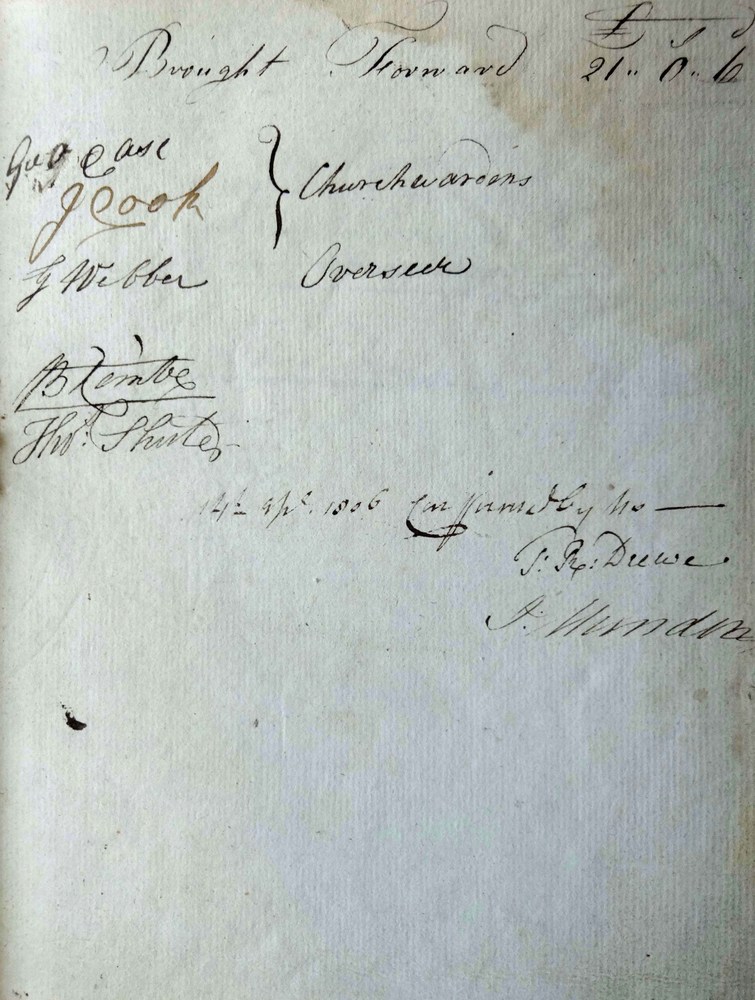 £ s d
Brought Forward 21 .. 0 .. 6
Case } Churchwardens
J Cook
G Webber Overseer
Thos. Shute
14th Apl. 1806 Confirmed by us —
T: R: Drewe